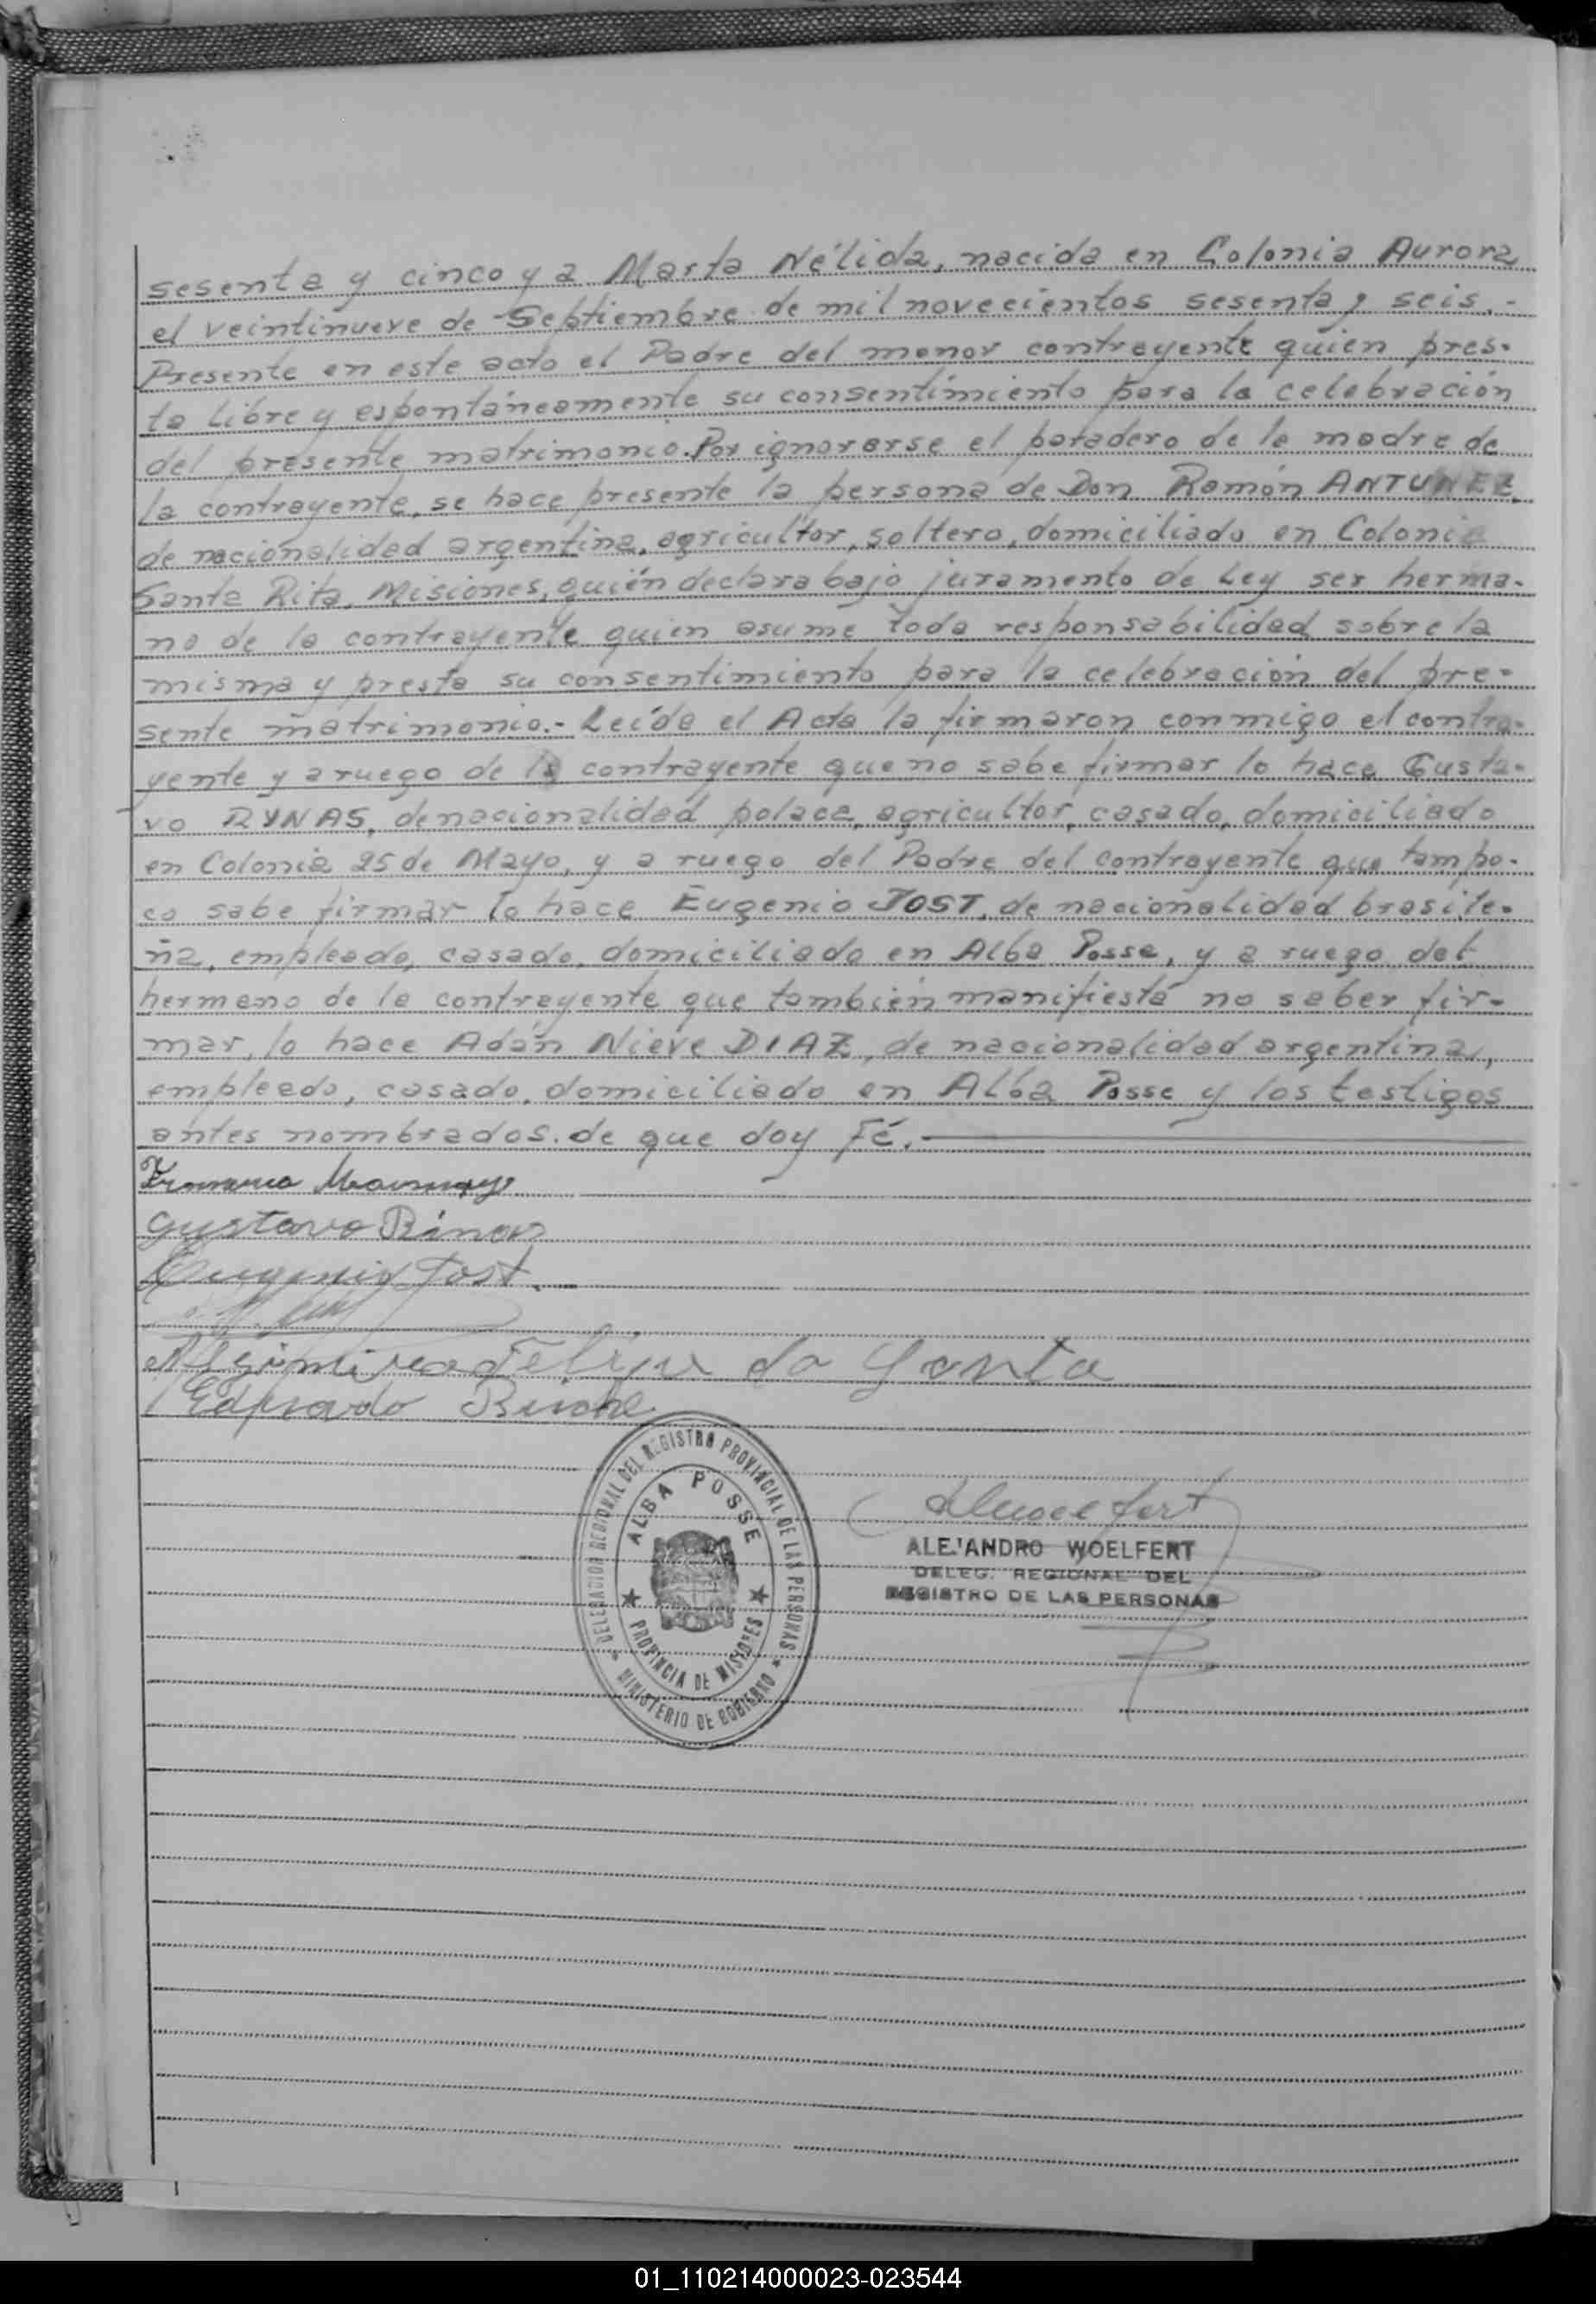 sesenta y cinco y a Marta Nélida, nacida en Colonia Aurora
el veintinueve de Septiembre de mil novecientos sesenta y seis.-
Presente en este acto el Padre del menor contrayente quien pres-
ta libre y espontáneamente su consentimiento para la celebración
del presente matrimonio. Por ignorarse el paradero de la madre de
la contrayente, se hace presente la persona de Don Ramón ANTUNEZ,
de nacionalidad argentina, agricultor, soltero, domiciliado en Colonia
Santa Rita, Misiones, quién declara bajo juramento de Ley ser herma-
no de la contrayente quien asume toda responsabilidad sobre la
misma y presta su consentimiento para la celebración del pre-
sente matrimonio.- Leída el Acta la firmaron conmigo el contra-
yente y a ruego de la contrayente que no sabe firmar lo hace Gusta-
vo RYNAS, de nacionalidad polaca, agricultor, casado, domiciliado
en Colonia 25 de Mayo, y a ruego del Padre del contrayente que tampo-
co sabe firmar lo hace Eugenio JOST, de nacionalidad brasile-
ña, empleado, casado, domiciliado en Alba Posse, y a ruego del
hermano de la contrayente que también manifiesta no saber fir-
mar, lo hace Adán Nieve DIAZ, de nacionalidad argentina,
empleado, casado, domiciliado en Alba Posse y los testigos
antes nombrados. de que doy Fé.
Gustavo Rinas
Eugenio Jost.
da
Eduardo
DELEGACION REGIONAL DEL REGISTRO PROVINCIAL DE LAS PERSONAS
ALBA POSSE
PROVINCIA DE MISIONES
MINISTERIO DE GOBIERNO
ALEJANDRO WOELFERT
DELEG. REGIONAL DEL
REGISTRO DE LAS PERSONAS
01_110214000023-023544